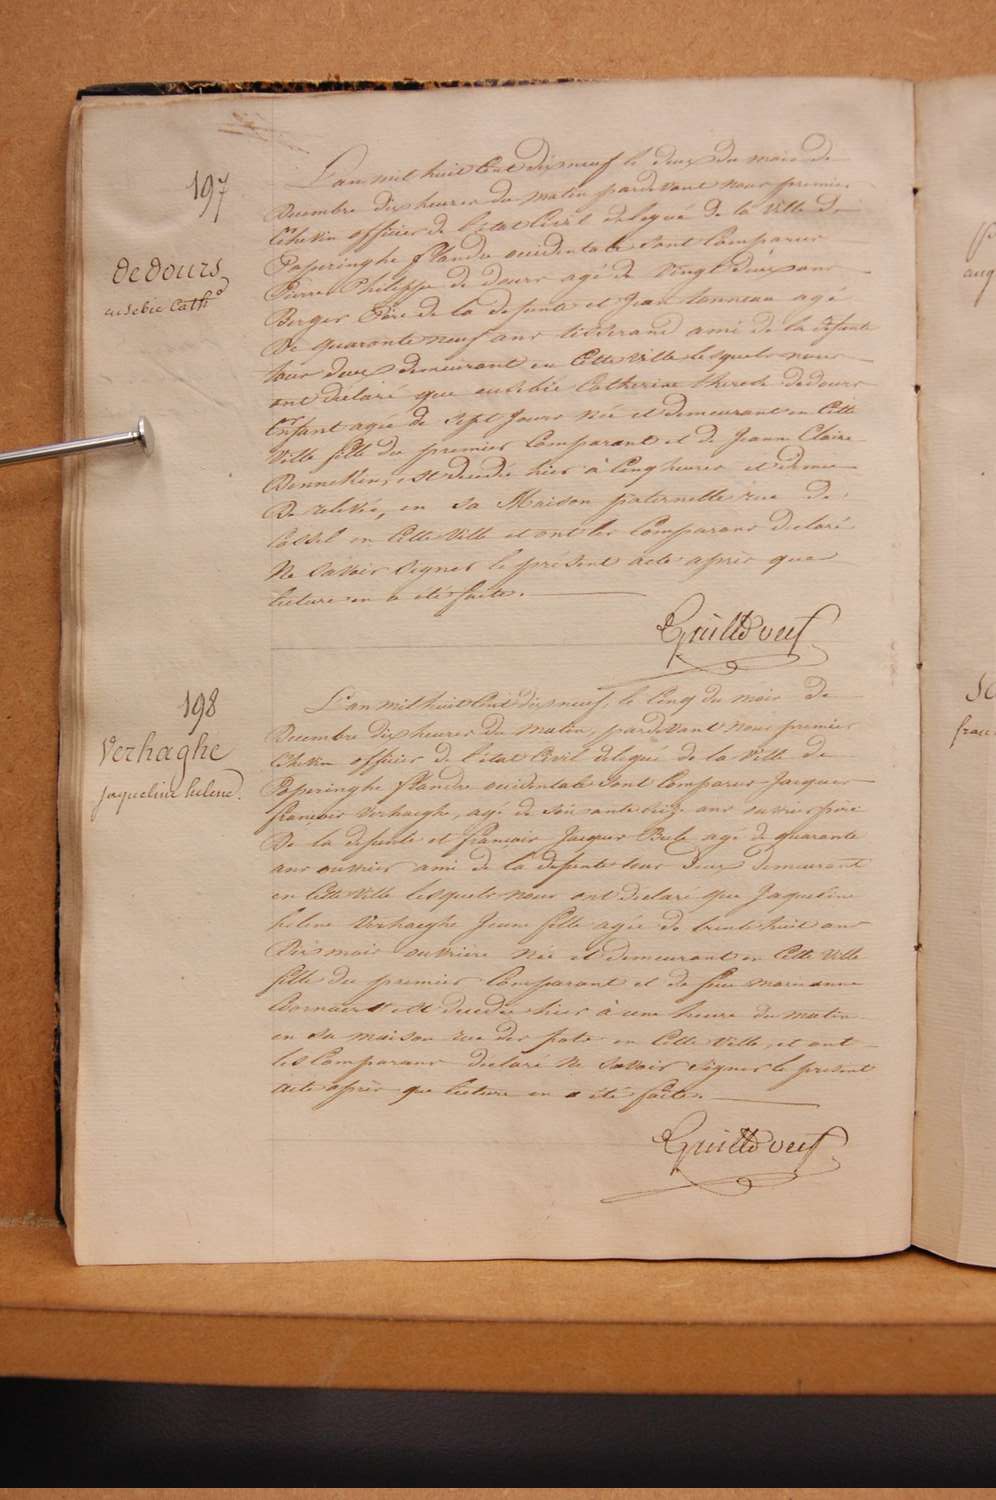 197
Dedours
eusebie Cath.e
L'an mil huit Cent dix neuf le deux du mois de
Decembre dix heures du matin pardevant nous premier
Echevin officier de l'etat Civil delegué de la Ville de
Poperinghe flandre occidentale sont Comparus
Pierre Philippe de dours agé de vingt deux ans
Berger Père de la defunte et Jean agé
De quarante neuf ans tisserand ami de la defunte
tous deux demeurant en Cette Ville lesquels nous
ont déclaré que eusebie Catherine therese dedours
Enfant agée de sept Jours née et demeurant en Cette
Ville fille du premier Comparant et de Jeanne Claire
est decedée hier à Cinq heures et demie
De relevée, en sa Maison paternelle rue de
Cassel en Cette Ville et ont les Comparans declaré
Ne savoir signer le présent acte après que
lecture en a été faite.
198
Verhaghe
jaqueline helene.
L'an mil huit Cent dix neuf, le Cinq du mois de
Decembre dix heures du matin, pardevant nous premier
Echevin officier de l'état Civil delegué de la Ville de
Poperinghe flandre occidentale sont Comparus Jacques
francois Verhaeghe, agé de soixante ans ouvrier père
De la defunte et françois Jacques agé de quarante
ans ouvrier ami de la defunte tous deux demeurant
en Cette Ville lesquels nous ont declaré que Jaqueline
helene Verhaeghe Jeune fille agée de trente huit ans
Dix mois ouvrière née et demeurant en Cette Ville
fille du premier Comparant et de feue marianne
est decedée hier à une heure du matin
en sa maison rue des pots en Cette Ville, et ont
les Comparans declaré Ne savoir signer le present
acte après que lecture en a été faite.